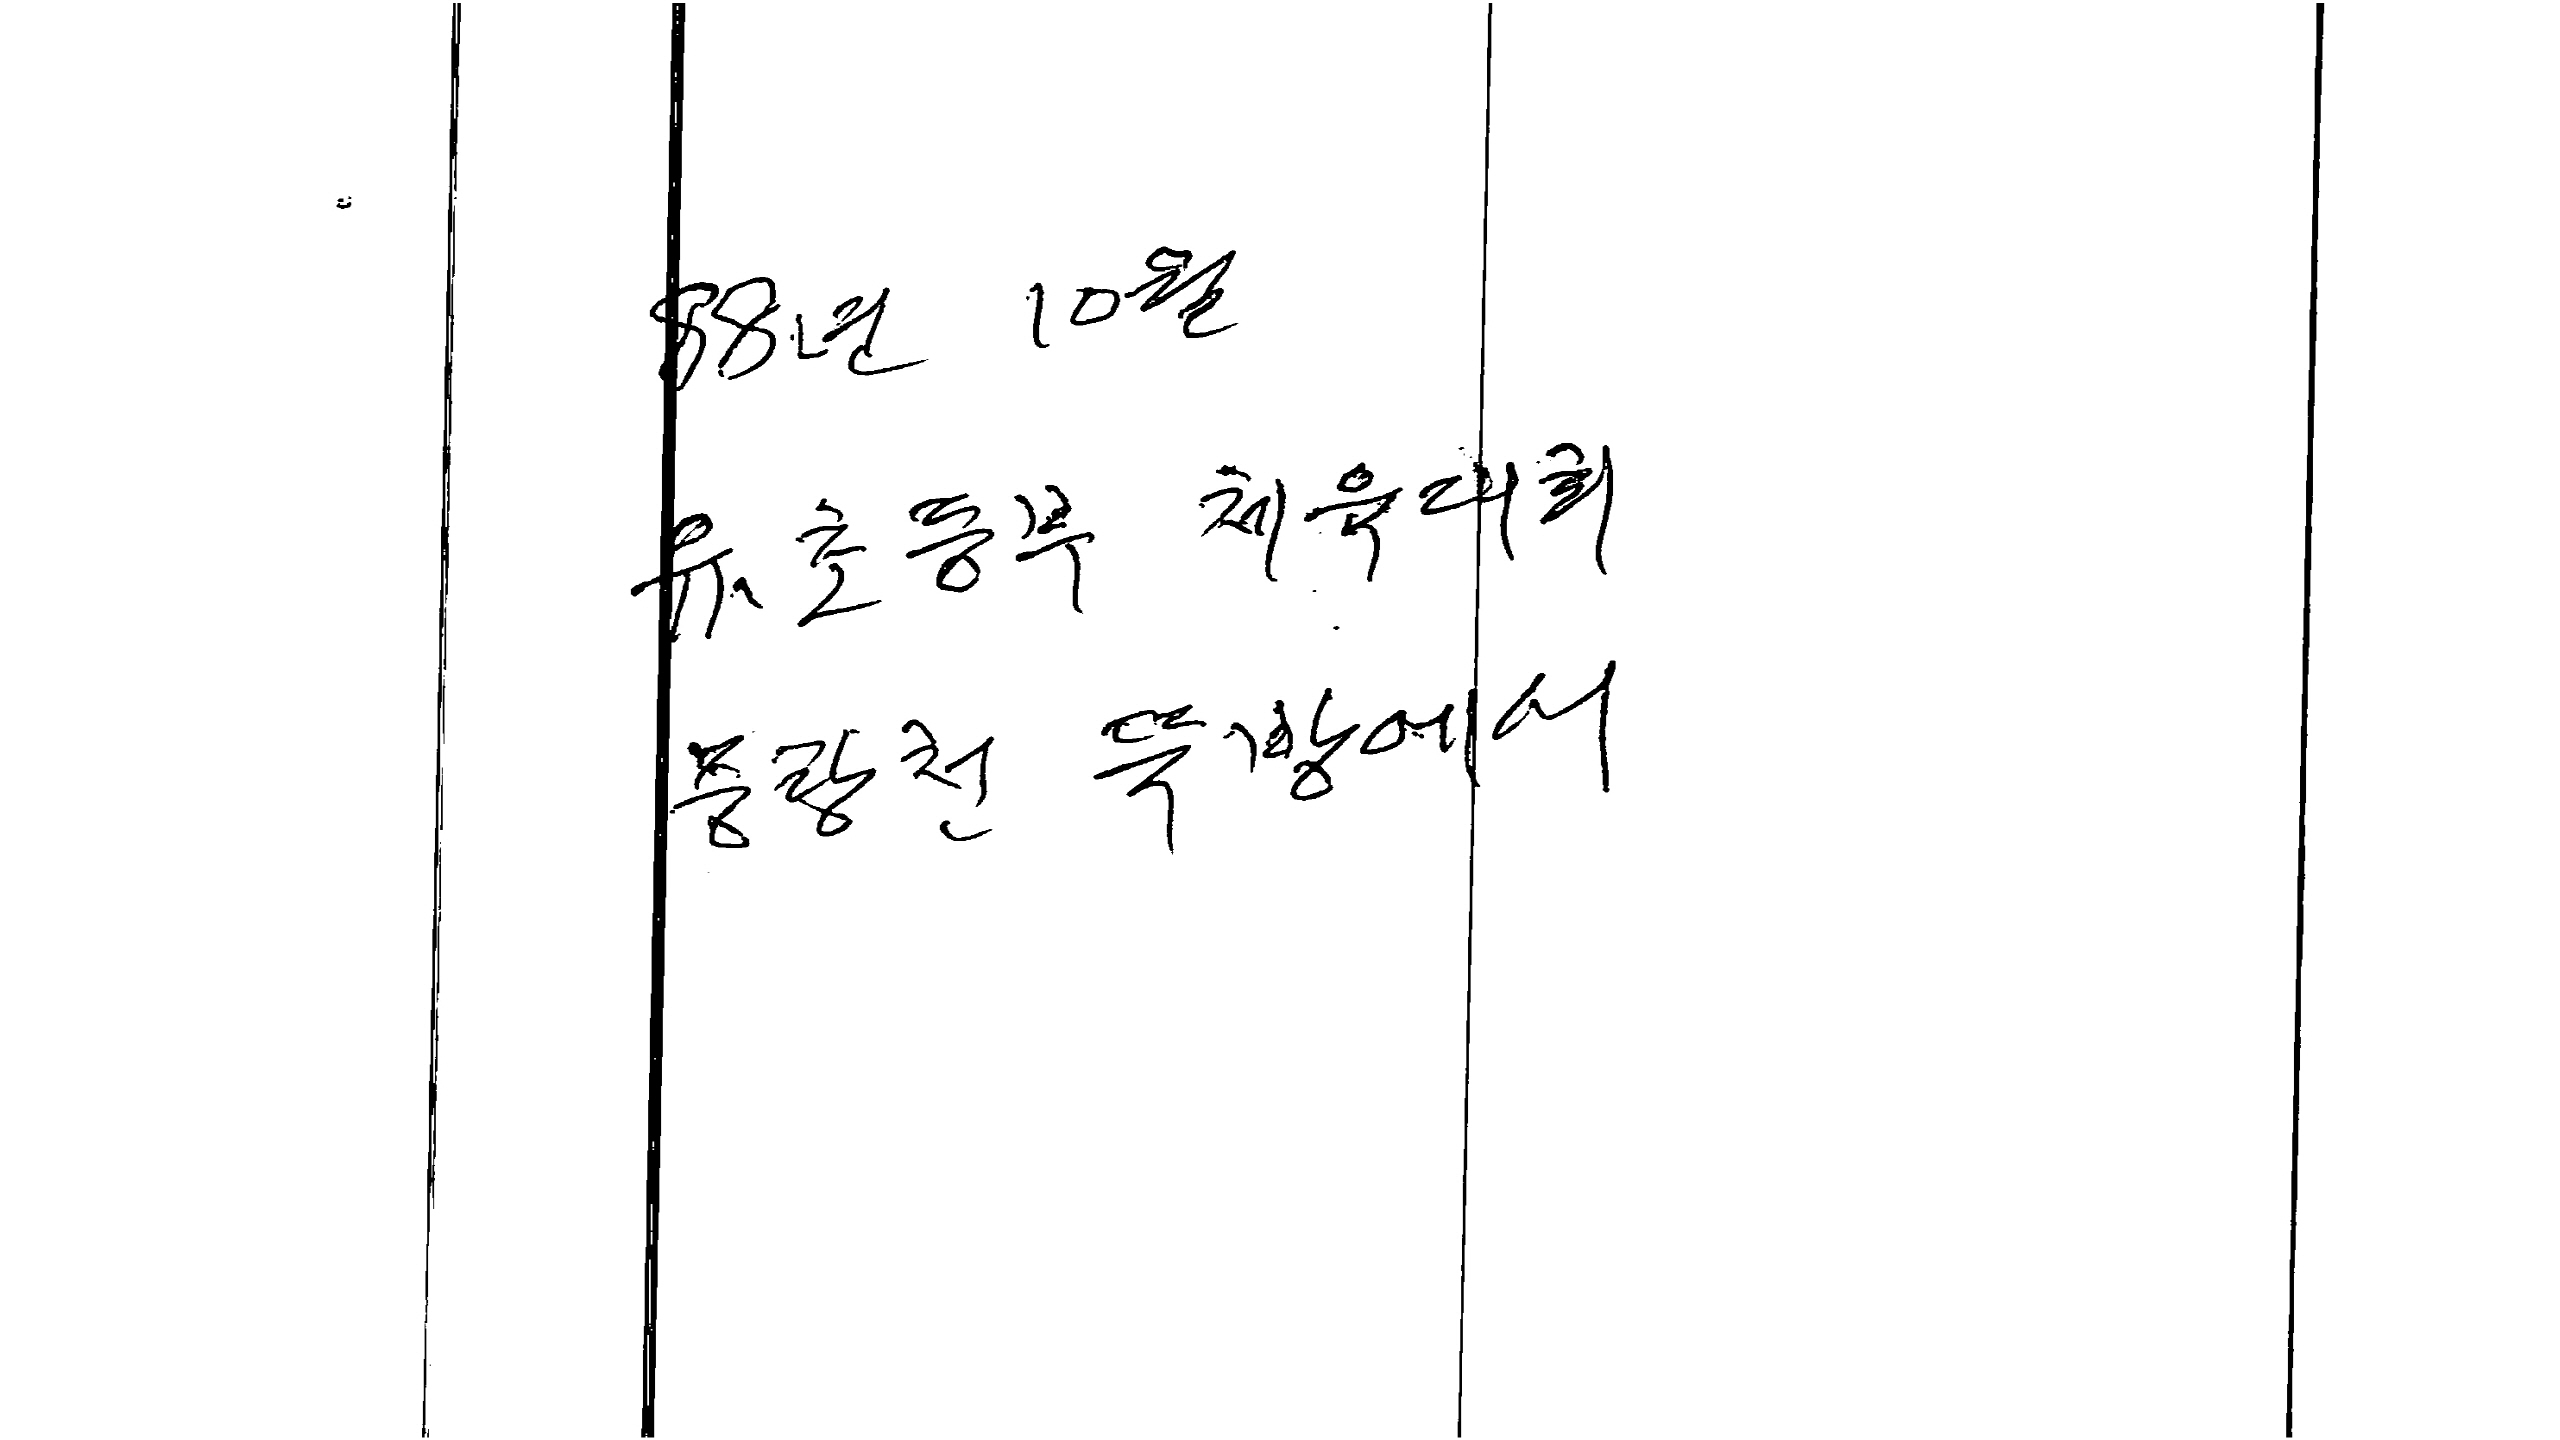 88년 10월
유、초등부 체육대회
중랑천 뚝방에서